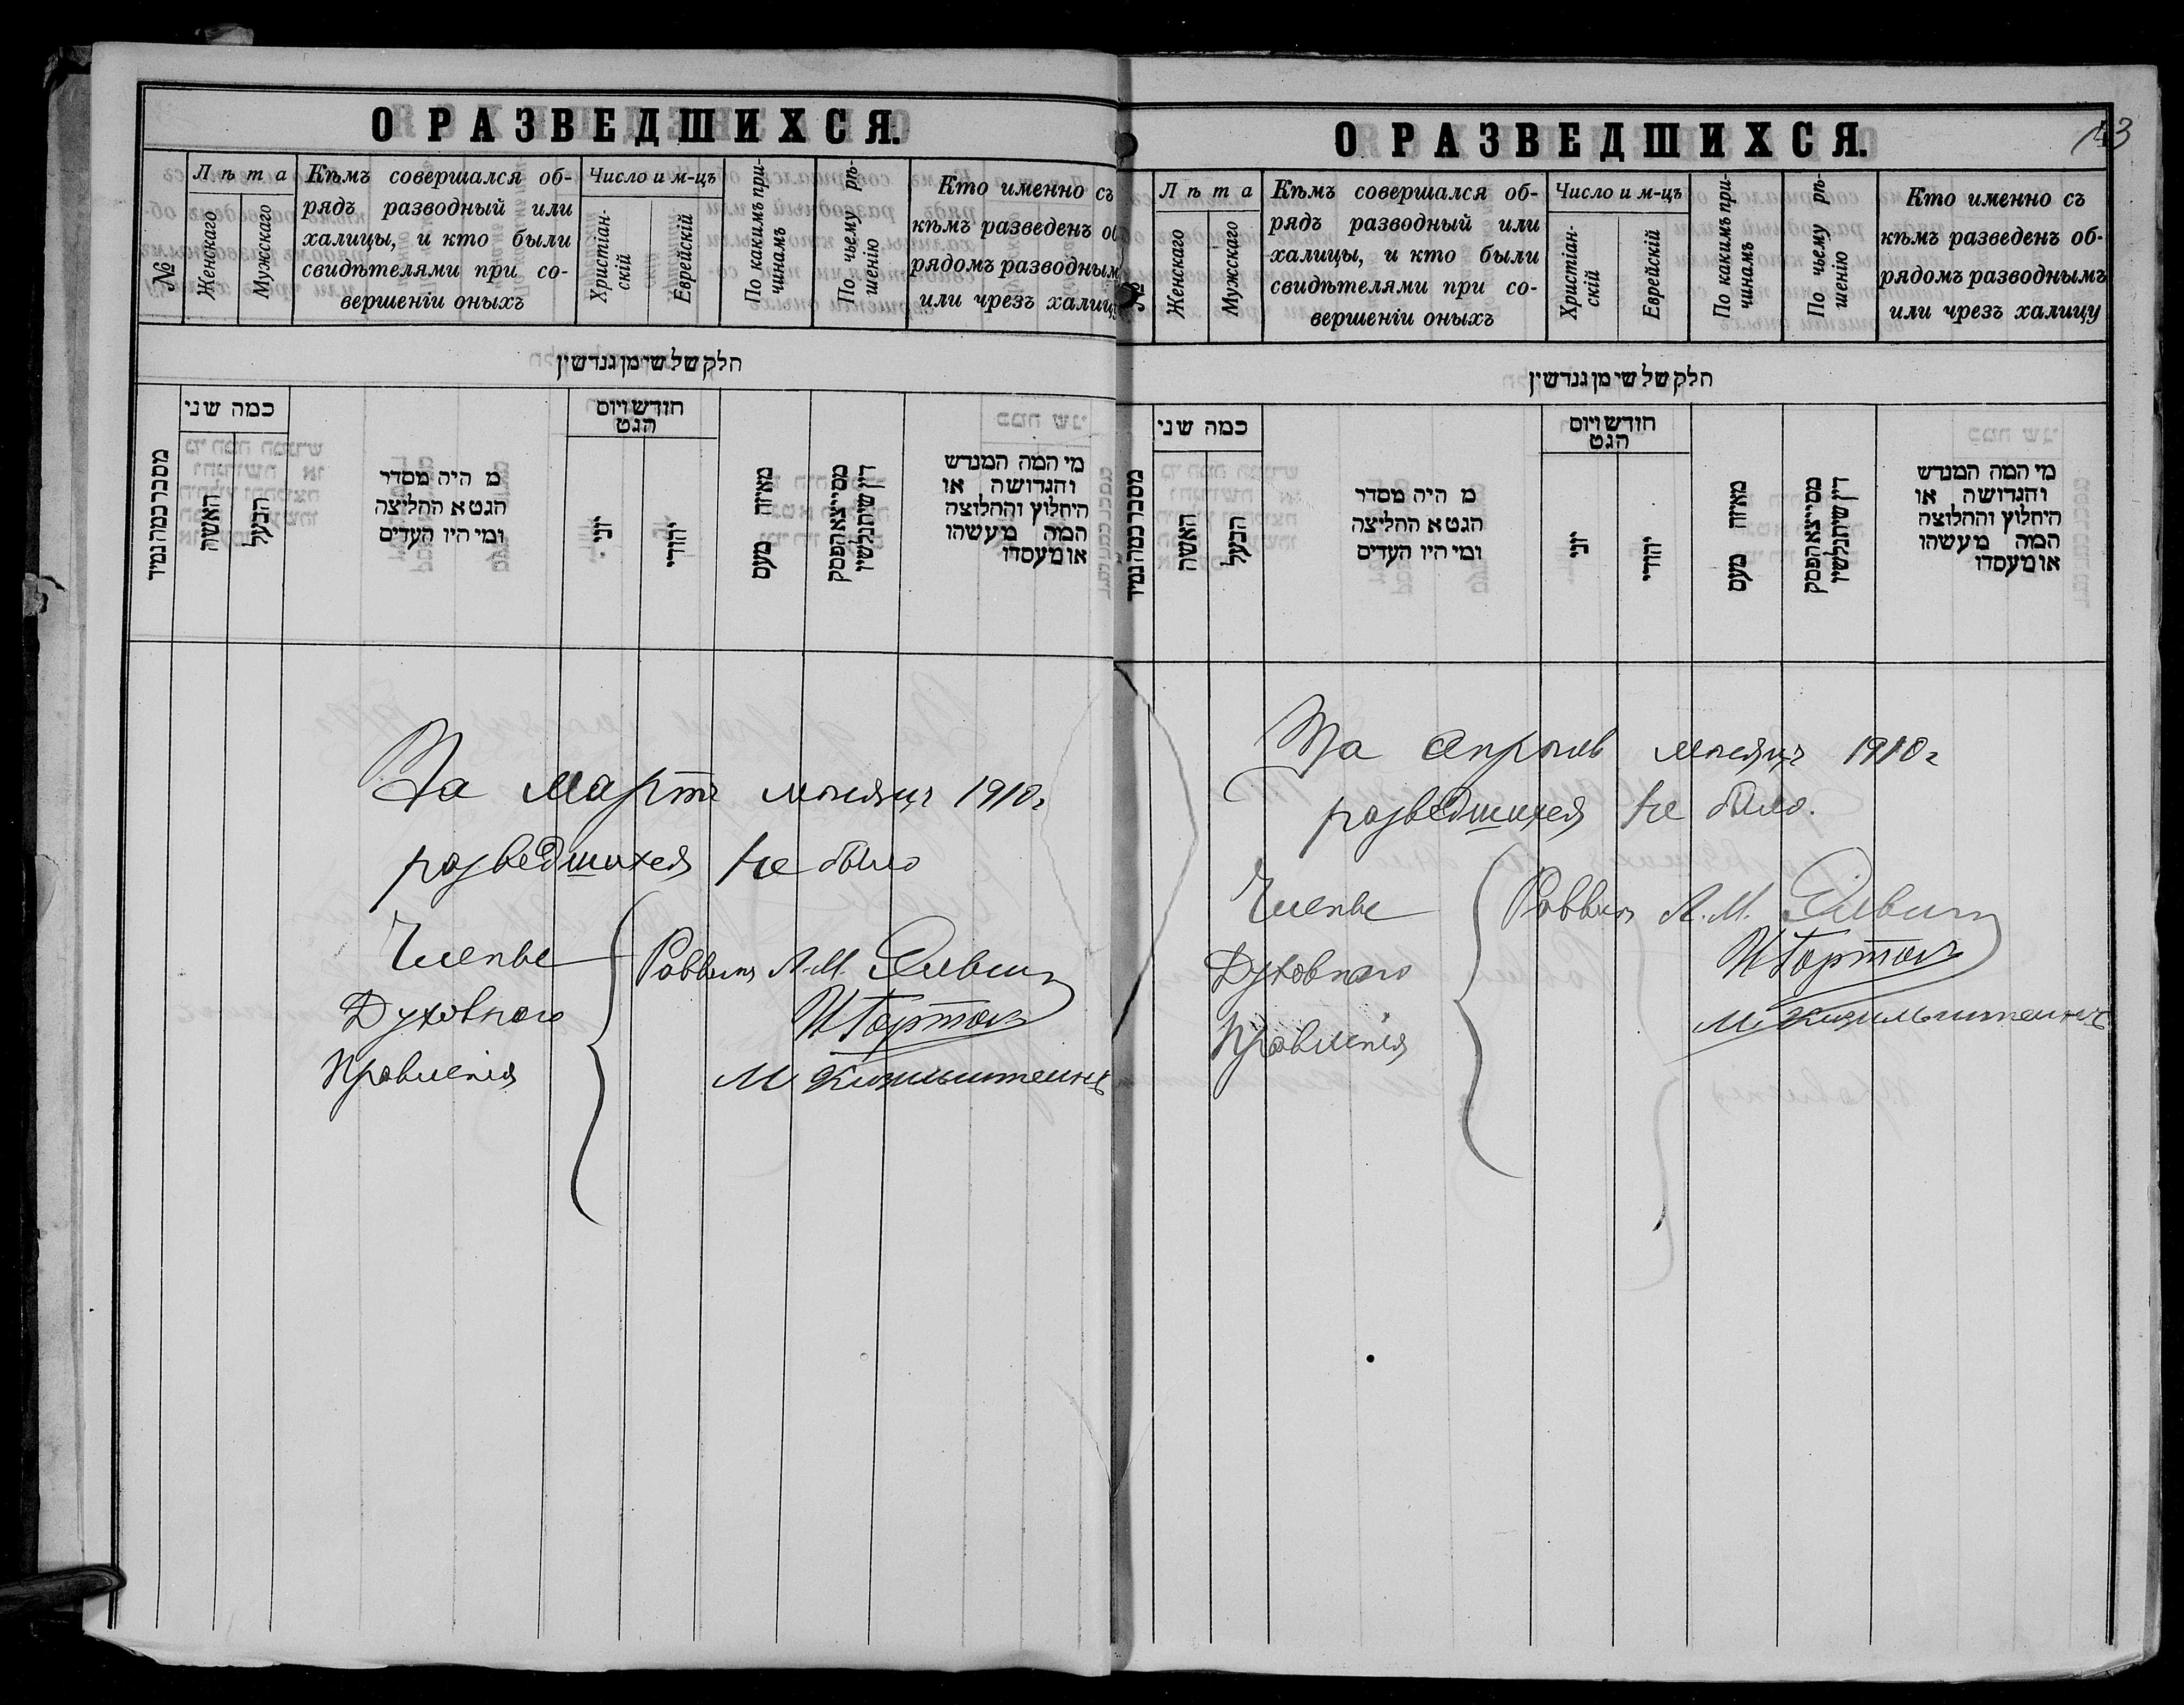 О РАЗВЕДШИХСЯ.
№
Лѣта
Женскаго
Мужскаго
Кѣмъ совершался об-
рядъ разводный или
халицы, и кто были
свидѣтелями при со-
вершеніи оныхъ
Число и м-цъ
Христіан-
скій
Еврейскій
По какимъ при-
чинамъ
По чьему рѣ-
шенію
Кто именно съ
кѣмъ разведенъ об
рядомъ разводным
или чрезъ халиц
חלק של שימן גנדשין
כמה שני
האשה
הבעל
מ היה מסדר
הגט א החליצה
ומי היו העדים
חודש ויום
הגט
יוני
יהודי
מאיזה טעם
מי המה המגרש
והגרושה או
היחלוץ והחלוצה
המה מעשהו
או מעסדו
За Мартъ мѣсяцъ 1910 г
разведшихся не было
Члены
Духовнаго
Правленія
Раввинъ А. М.
И Гортон
М
О РАЗВЕДШИХСЯ.
143
№
Лѣта
Женскаго
Мужскаго
Кѣмъ совершался об-
рядъ разводный или
халицы, и кто были
свидѣтелями при со-
вершеніи оныхъ
Число и м-цъ
Христіан-
скій
Еврейскій
По какимъ при-
чинамъ
По чьему рѣ-
шенію
Кто именно съ
кѣмъ разведенъ об-
рядомъ разводнымъ
или чрезъ халицу
חלק של שימן גנדשין
כמה שני
האשה
הבעל
מ היה מסדר
הגט א החליצה
ומי היו העדים
חודש ויום
הגט
יוני
יהודי
מאיזה טעם
מי המה המגרש
והגרושה או
היחלוץ והחלוצה
המה מעשהו
או מעסדו
За Апрѣль мѣсяцъ 1910 г
разведшихся не было.
Члены
Духовнаго
Правленія
Раввинъ А. М.
И Гортон
М